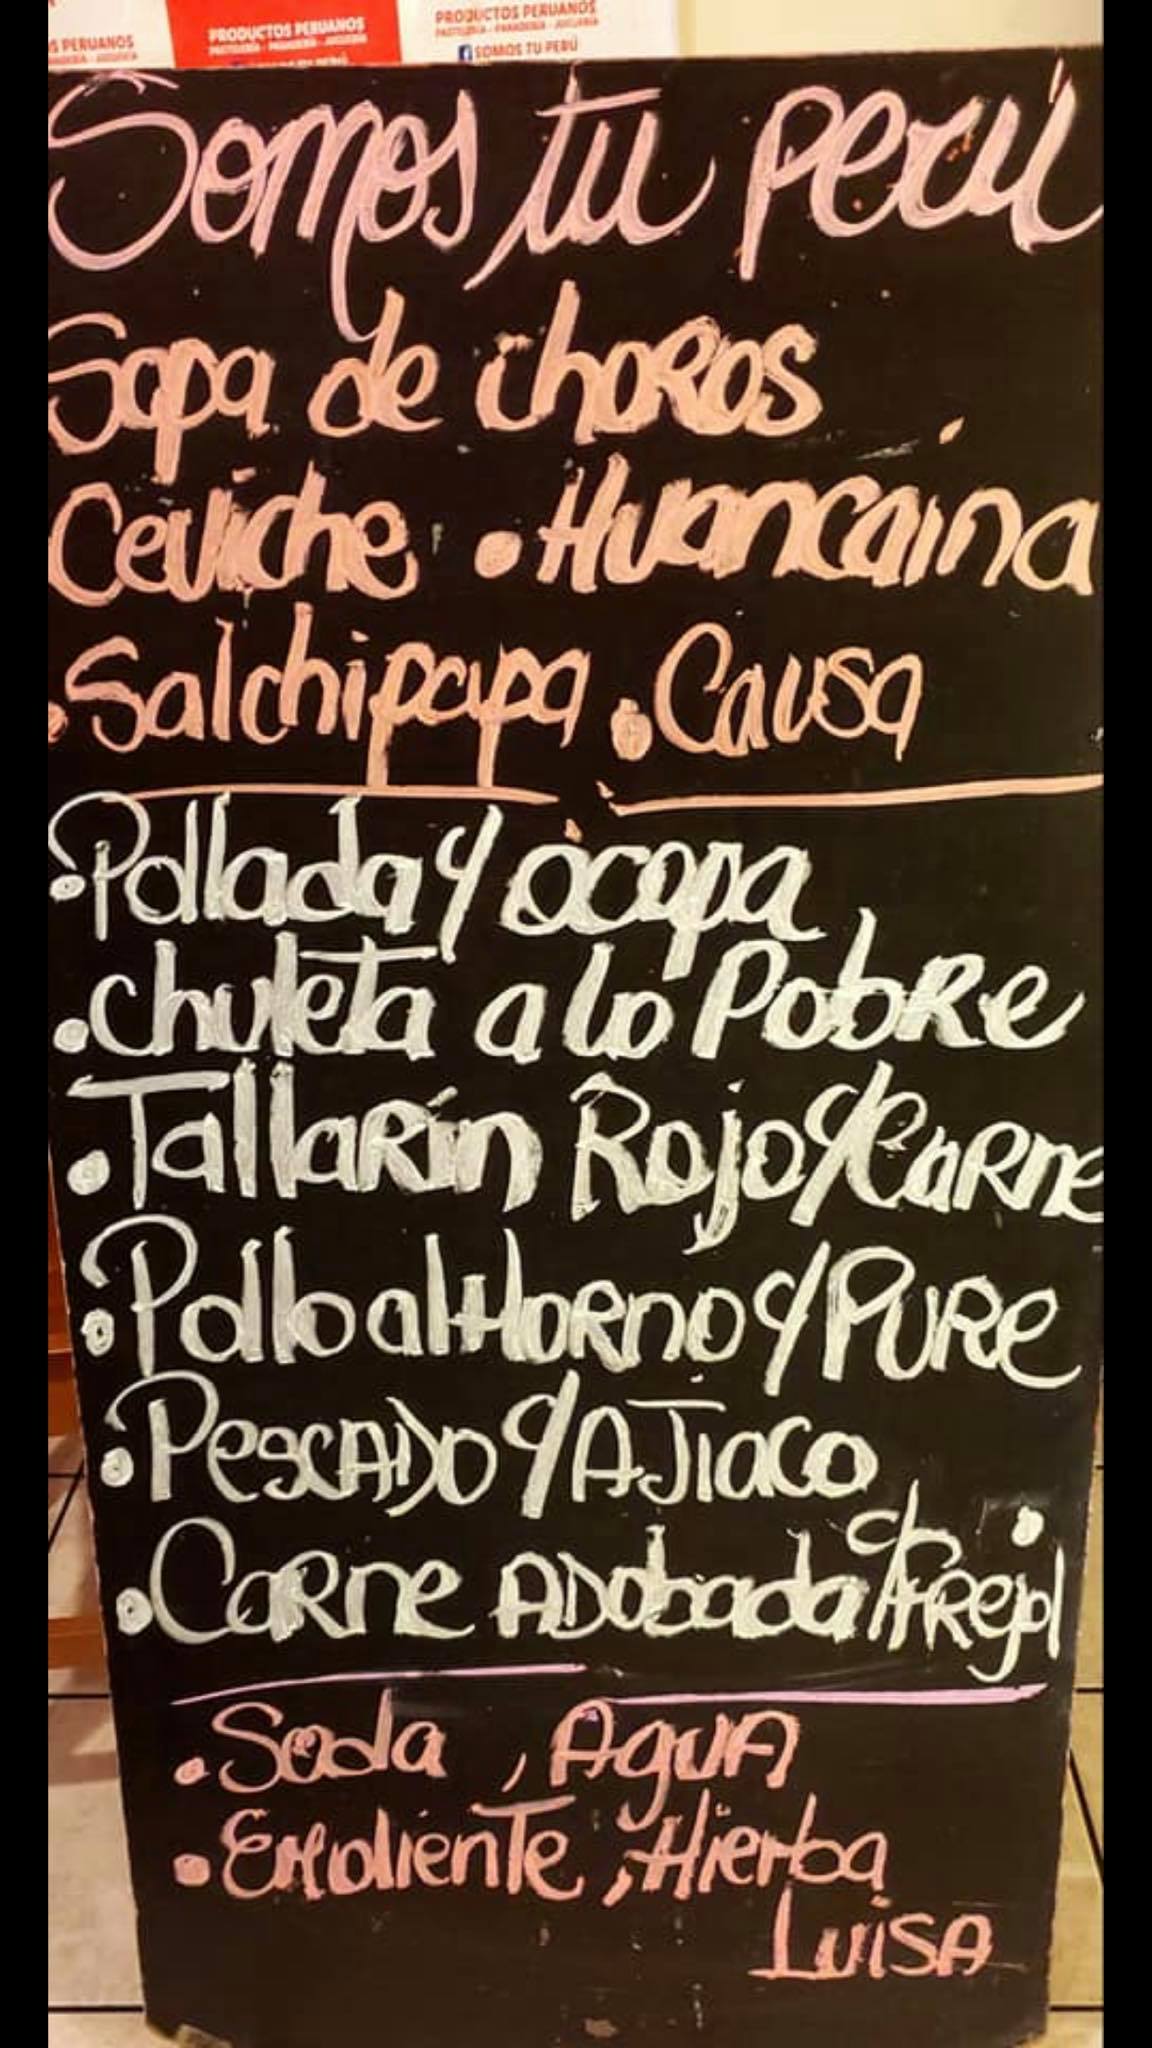 S PERUANOS
PANADERÍA - JUGUERÍA
PRODUCTOS PERUANOS
PASTELERÍA - PANADERÍA - JUGUERÍA
PRODUCTOS PERUANOS
PASTELERÍA - PANADERÍA - JUGUERÍA
SOMOS TU PERÚ
Somos tu perú
Sopa de choros
Ceviche . Huancaina
. Salchipapa . Causa
. Pollada y ocopa
. chuleta a lo Pobre
. Tallarín Rojo y Carne
. Pollo al Horno y PURe
. PescADo y AJiaco
. CaRne ADobada c/ FRejol
. Soda , AguA
. Emoliente , Hierba
LuisA